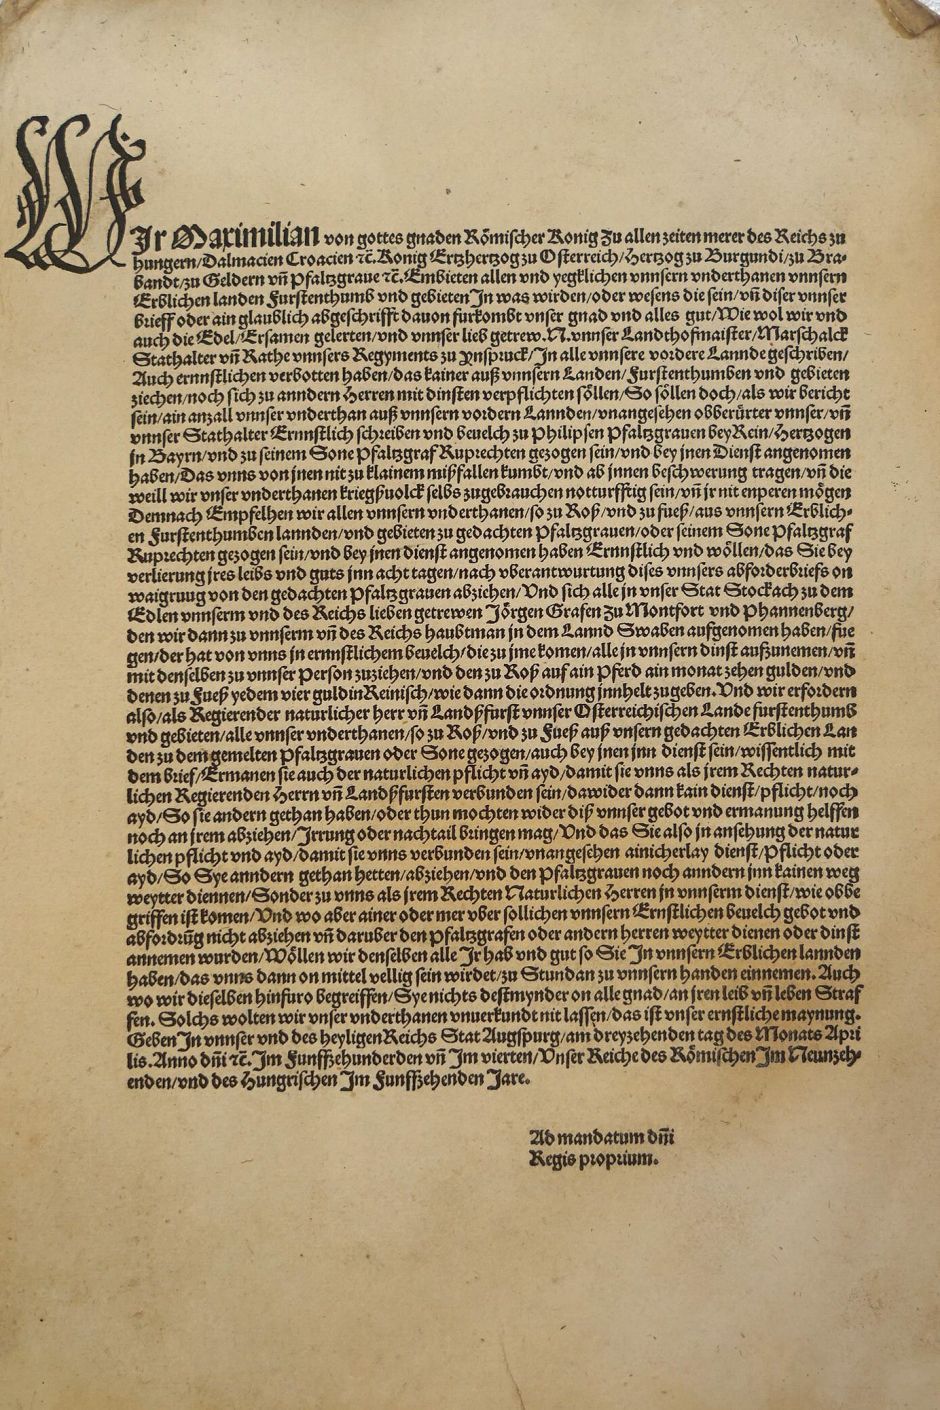 WIr Maximilian von gottes gnaden Römischer Konig Zu allen zeiten merer des Reichs zu
hungern/Dalmacien Croacien ꝛc̃. Konig Ertzhertzog zu Osterreich/Hertzog zu Burgundi/zu Bra-
bandt/zu Geldern vñ Pfaltzgraue ꝛc̃. Embieten allen vnd yegklichen vnnsern vnderthanen vnnsern
Erblichen landen Furstenthumb vnd gebieten In was wirden/oder wesens die sein/vñ diser vnnser
brieff oder ain glaublich abgeschrifft dauon furkombt vnser gnad vnd alles gut/Wie wol wir vnd
auch die Edel/Ersamen gelerten/vnd vnnser lieb getrew. N. vnnser Landthofmaister/Marschalck
Stathalter vñ Rathe vnnsers Regyments zu ynspruck/In alle vnnsere vordere Lannde geschriben/
Auch ernnstlichen verbotten haben/das kainer auß vnnsern Landen/Furstenthumben vnd gebieten
ziechen/noch sich zu anndern Herren mit dinsten verpflichten söllen/So söllen doch/als wir bericht
sein/ain anzall vnnser vnderthan auß vnnsern vordern Lannden/vnangesehen obberürter vnnser/vñ
vnnser Stathalter Ernnstlich schreiben vnd beuelch zu Philipsen Pfaltzgrauen bey Rein/Hertzogen
jn Bayrn/vnd zu seinem Sone Pfaltzgraf Ruprechten gezogen sein/vnd bey jnen Dienst angenomen
haben/Das vnns von jnen nit zu klainem mißfallen kumbt/vnd ab jnnen beschwerung tragen/vñ die
weill wir vnser vnderthanen kriegßuolck selbs zugebrauchen notturfftig sein/vñ jr nit enperen mögen
Demnach Empfelhen wir allen vnnsern vnderthanen/so zu Roß/vnd zu fueß/aus vnnsern Erblich-
en Furstenthumben lannden/vnd gebieten zu gedachten Pfaltzgrauen/oder seinem Sone Pfaltzgraf
Ruprechten gezogen sein/vnd bey jnen dienst angenomen haben Ernnstlich vnd wöllen/das Sie bey
verlierung jres leibs vnd guts jnn acht tagen/nach vberantwurtung dises vnnsers abforderbriefs on
waigruug von den gedachten Pfaltzgrauen abziehen/Vnd sich alle jn vnser Stat Stockach zu dem
Edlen vnnserm vnd des Reichs lieben getrewen Jörgen Grafen zu Montfort vnd Phannenberg/
den wir dann zu vnnserm vñ des Reichs haubtman jn dem Lannd Swaben aufgenomen haben/fue
gen/der hat von vnns jn ernnstlichem beuelch/die zu jme komen/alle jn vnnsern dinst außzunemen/vñ
mit denselben zu vnnser Person zuziehen/vnd den zu Roß auf ain Pferd ain monat zehen gulden/vnd
denen zu Fueß yedem vier guldin Reinisch/wie dann die ordnung jnnhelt zugeben. Vnd wir erfordern
also/als Regierender naturlicher herr vñ Landßfurst vnnser Osterreichischen Lande furstenthumb
vnd gebieten/alle vnnser vnderthanen/so zu Roß/vnd zu Fueß auß vnsern gedachten Erblichen Lan
den zu dem gemelten Pfaltzgrauen oder Sone gezogen/auch bey jnen jnn dienst sein/wissentlich mit
dem brief/Ermanen sie auch der naturlichen pflicht vñ ayd/damit sie vnns als jrem Rechten natur-
lichen Regierenden Herrn vñ Landßfursten verbunden sein/dawider dann kain dienst/pflicht/noch
ayd/So sie andern gethan haben/oder thun mochten wider diß vnnser gebot vnd ermanung helffen
noch an jrem abziehen/Irrung oder nachtail bringen mag/Vnd das Sie also jn ansehung der natur
lichen pflicht vnd ayd/damit sie vnns verbunden sein/vnangesehen ainicherlay dienst/Pflicht oder
ayd/So Sye anndern gethan hetten/abziehen/vnd den Pfaltzgrauen noch anndern jnn kainen weg
weytter diennen/Sonder zu vnns als jrem Rechten Naturlichen Herren jn vnnserm dienst/wie obbe
griffen ist komen/Vnd wo aber ainer oder mer vber sollichen vnnsern Ernstlichen beuelch gebot vnd
abfordrũg nicht abziehen vñ daruber den Pfaltzgrafen oder andern herren weytter dienen oder dinst
annemen wurden/Wöllen wir denselben alle Ir hab vnd gut so Sie In vnnsern Erblichen lannden
haben/das vnns dann on mittel vellig sein wirdet/zu Stundan zu vnnsern handen einnemen. Auch
wo wir dieselben hinfuro begreiffen/Sye nichts destmynder on alle gnad/an jren leib vñ leben Straf
fen. Solchs wolten wir vnser vnderthanen vnuerkundt nit lassen/das ist vnser ernstliche maynung.
Geben In vnnser vnd des heyligen Reichs Stat Augspurg/am dreyzehenden tag des Monats Apri
lis. Anno dñi ꝛc̃. Im Funffzehunderden vñ Im vierten/Vnser Reiche des Römischen Im Neunzeh-
enden/vnd des Hungrischen Im Funffzehenden Jare.
Ad mandatum dñi
Regis proprium.